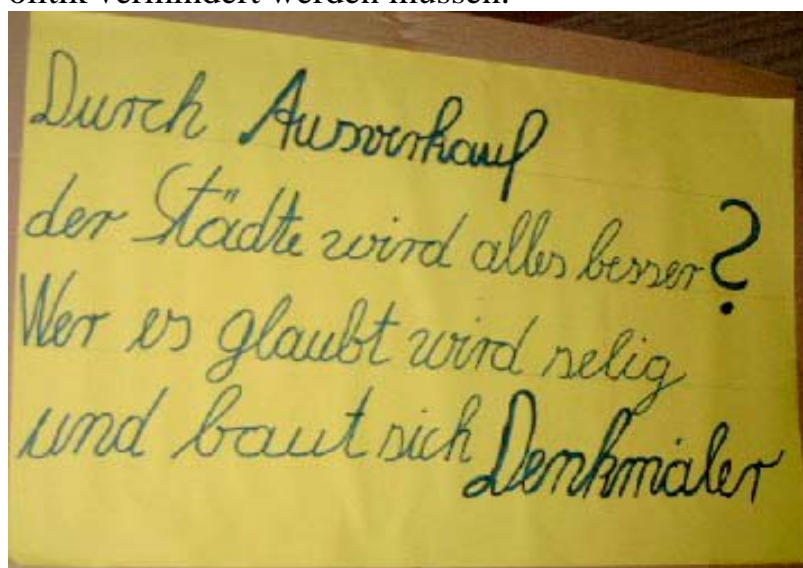 olitik vermindert werden müssen.
Durch Ausverkauf
der Städte wird alles besser?
Wer es glaubt wird selig
und baut sich Denkmäler